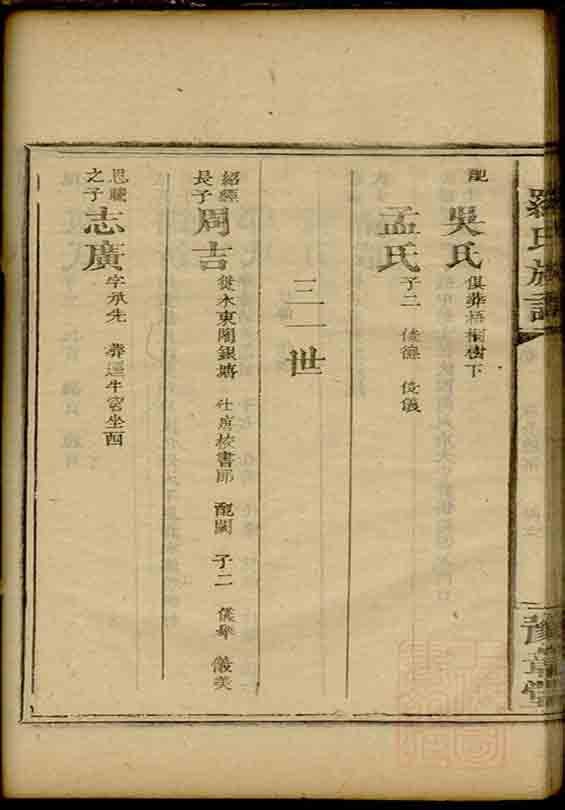 羅氏族譜
豫章堂
配
吳氏 俱葬梧桐樹下
孟氏 子二 俊德 俊儀
三一世
紹經長子 周吉 從永東閣銀塘 仕唐校書郎 配闕 子二 儀舉 儀美
思聰之子 志廣 字承先 葬運牛宮坐酉